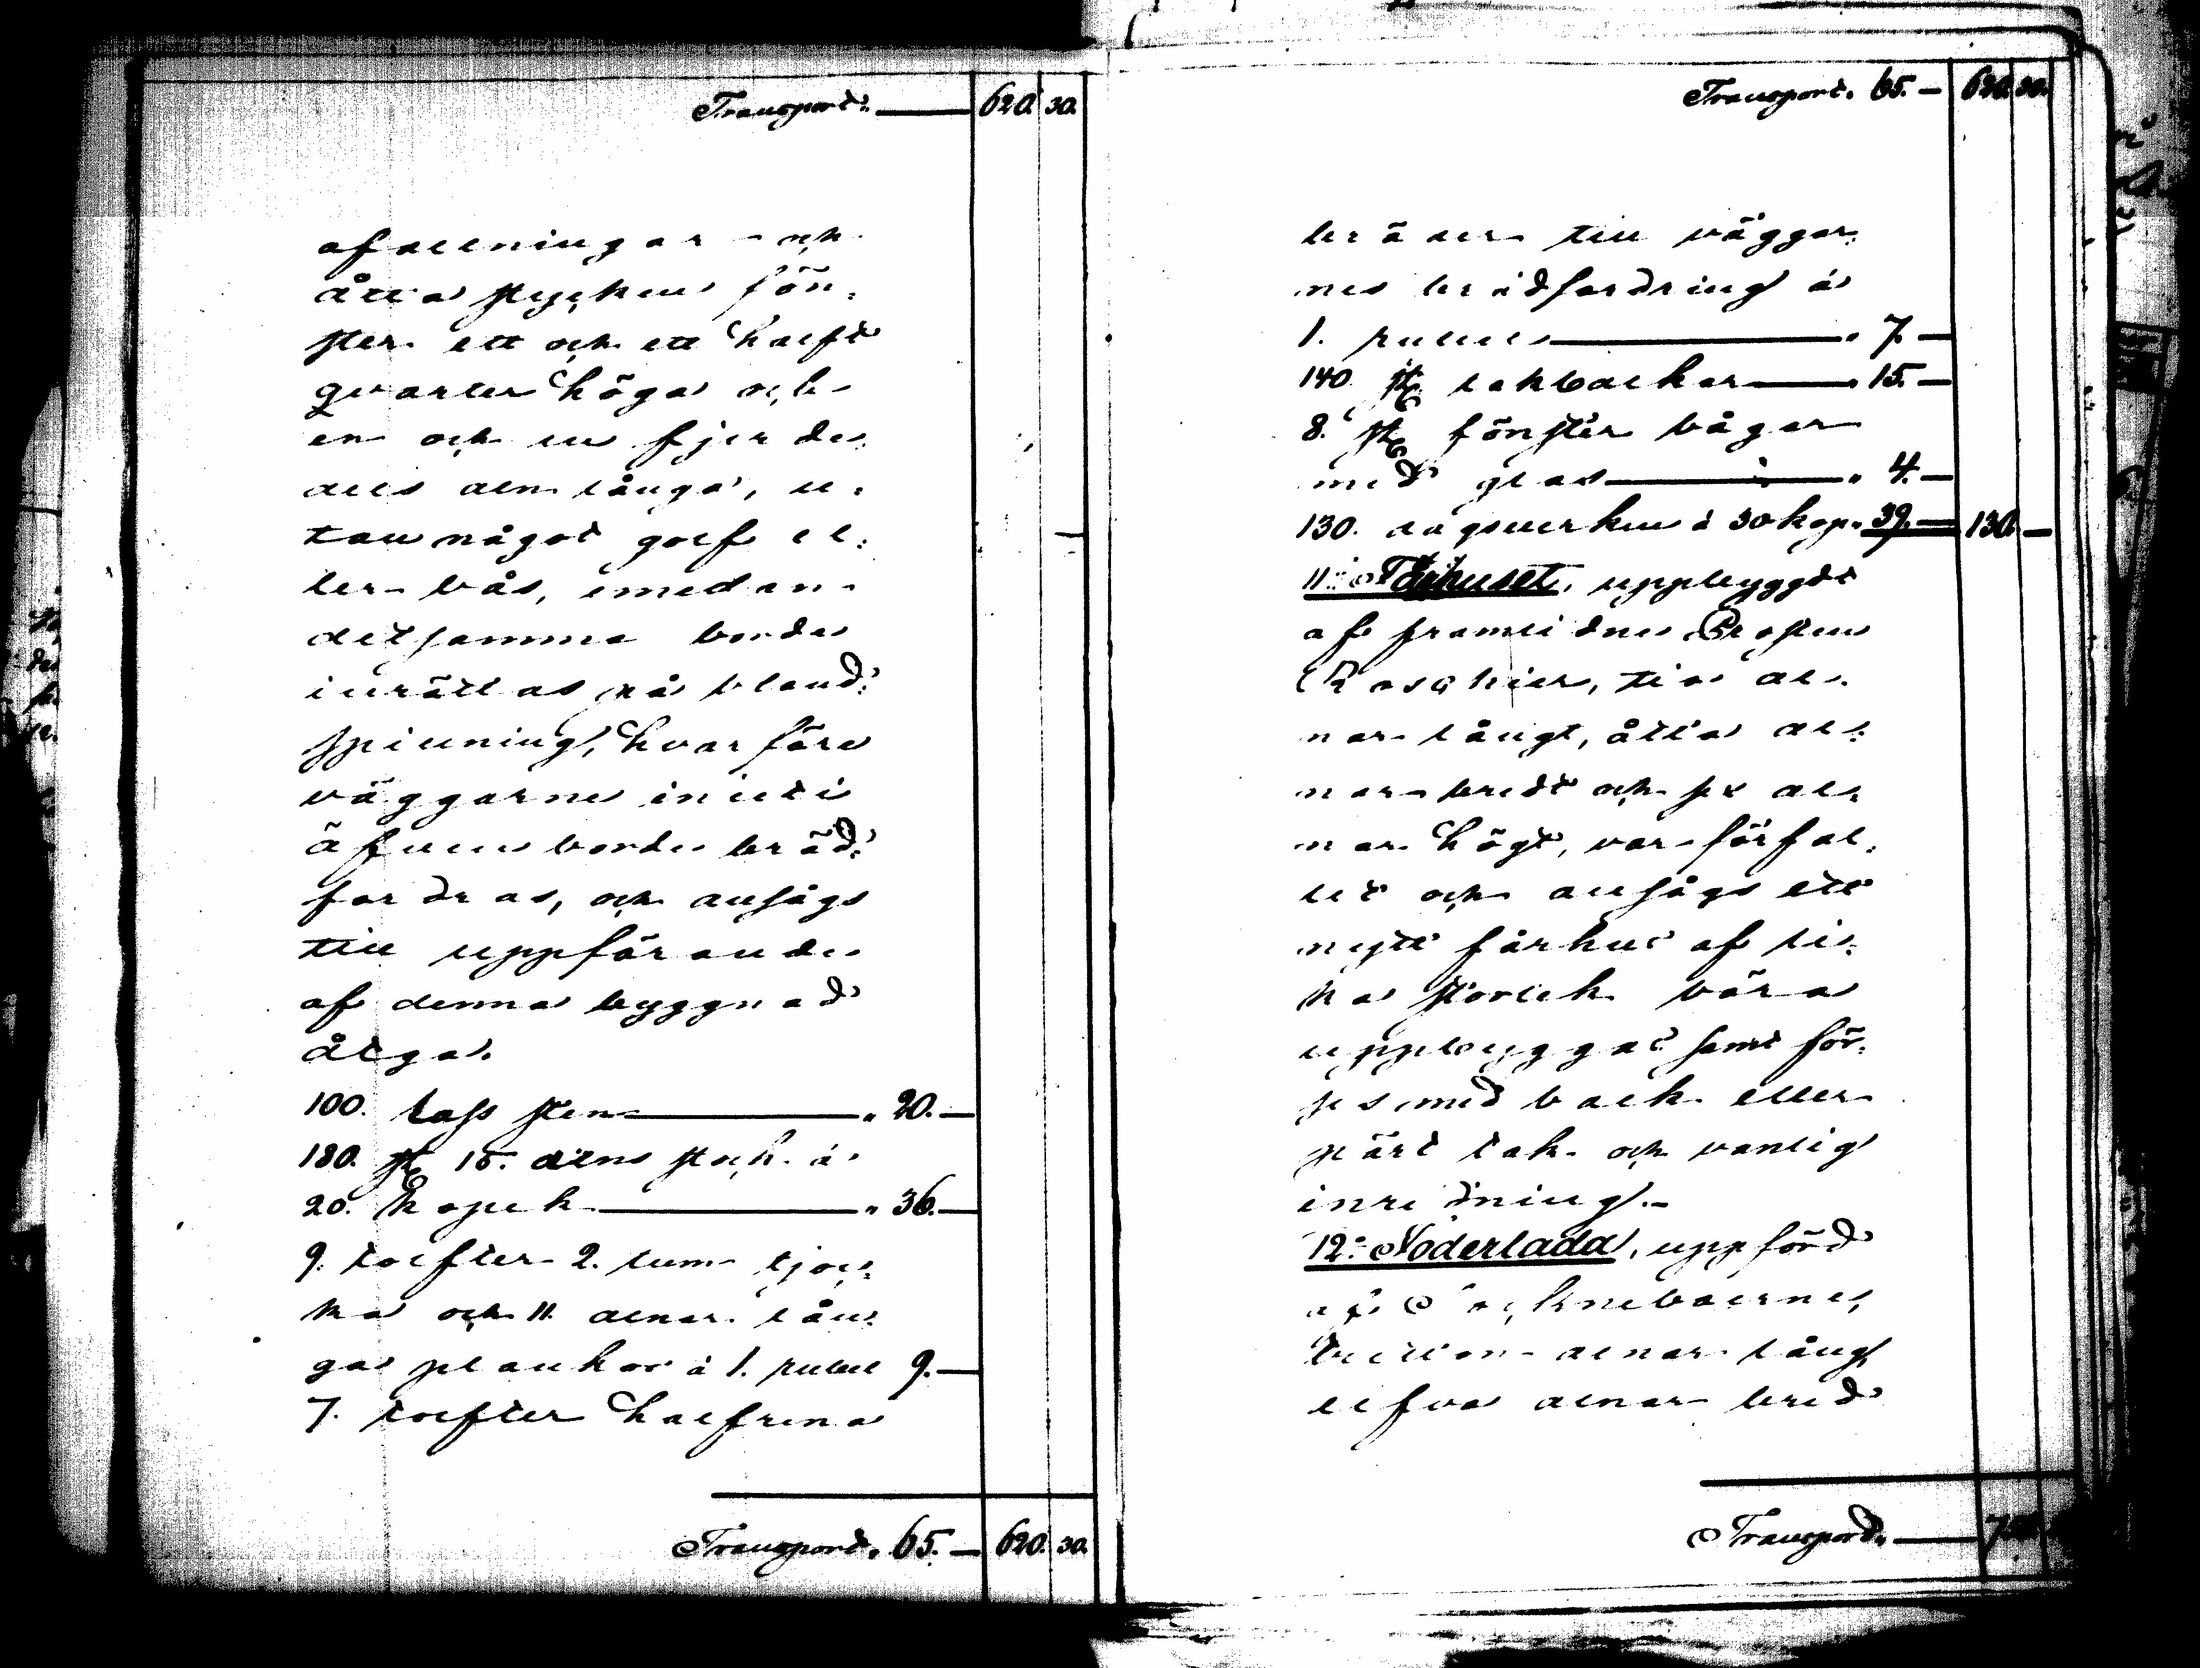 Transport. — 620. 30.
afdelningar och
åtta stycken fön:
ster ett och ett halft
qvarter höga och
en och en fjerde:
dels aln långa, u:
tan något golf el:
ler bås, emedan
detsamma borde
inrättas på bland:
spinning, hvarföre
väggarne inuti
äfven borde bräd:
fordras, och ansågs
till uppförande
af denna byggnad
åtgå.
100. lass sten — " 20. —
180. st 15. alns stock à
20. kopek — " 36. —
9. tolfter 2. tum tjoc:
ka och 11. alnar lån:
ga plankor à 1. rubel 9. —
7. tolfter halfrena
Transport. 65. — 620. 30.
Transport. 65. — 620. 30.
bräder till väggar:
nes brädfordring à
1. rubel — " 7. —
140. st takbalkar — " 15. —
8. st fönster bågar
med glas — " 4. —
130. dagsverken à 30 kop. 39. — 130. —
11:o Fårhuset, uppbyggdt
af framlidne Prosten
Roschier, tio al:
nar långt, åtta al:
nar bredt och sex al:
nar högt, var förfal:
let och ansågs ett
nytt fårhus af li:
ka storlek böra
uppbyggas samt för:
ses med balk eller
pärt tak och vanlig
inredning.
12:o Foderlada, uppförd
af Sockneboerne,
tretton alnar lång
elfva alnar bred
Transport. —